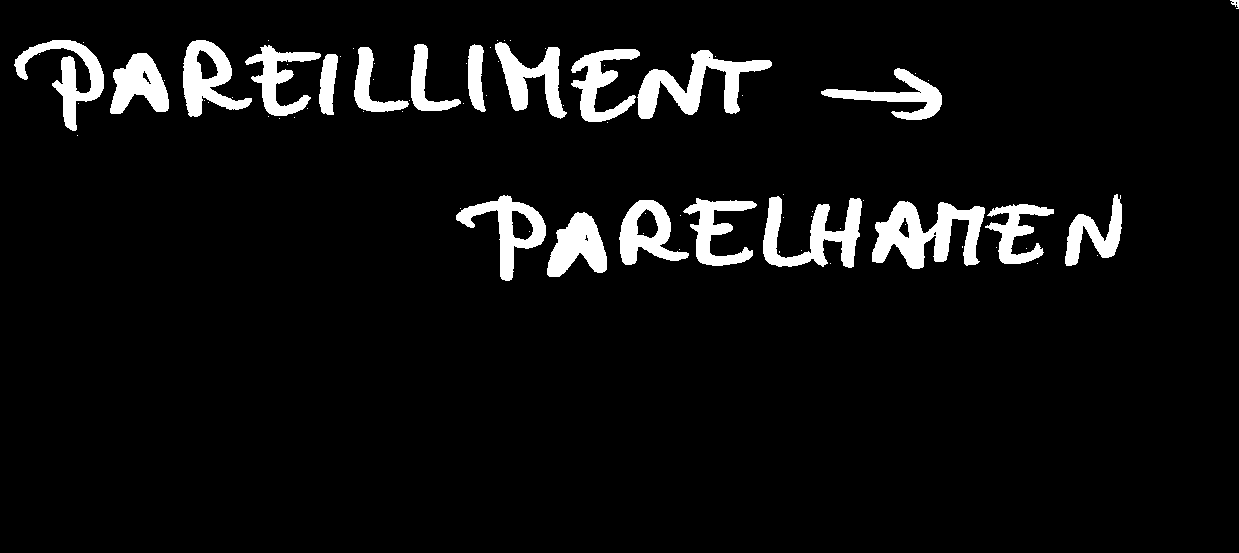 PAREILLIMENT →
PARELHAMEN